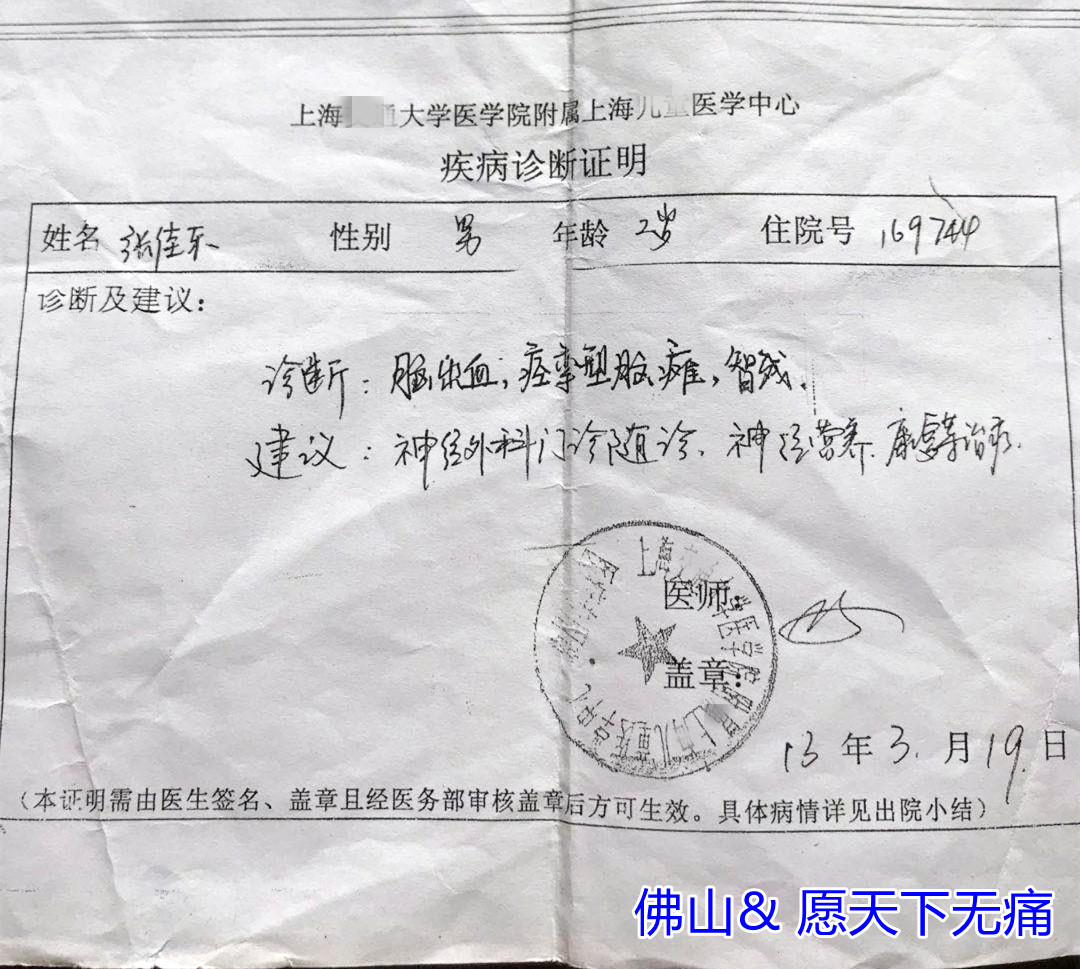 上海 通大学医学院附属上海儿童医学中心
疾病诊断证明
姓名 张佳乐 性别 男 年龄 2岁 住院号 169744
诊断及建议：
诊断：脑出血，痉挛型脑瘫，智残。
建议：神经外科门诊随诊、神经营养、康复等治疗。
医师：
盖章：
13年3.月19.日
（本证明需由医生签名、盖章且经医务部审核盖章后方可生效。具体病情详见出院小结）
佛山& 愿天下无痛